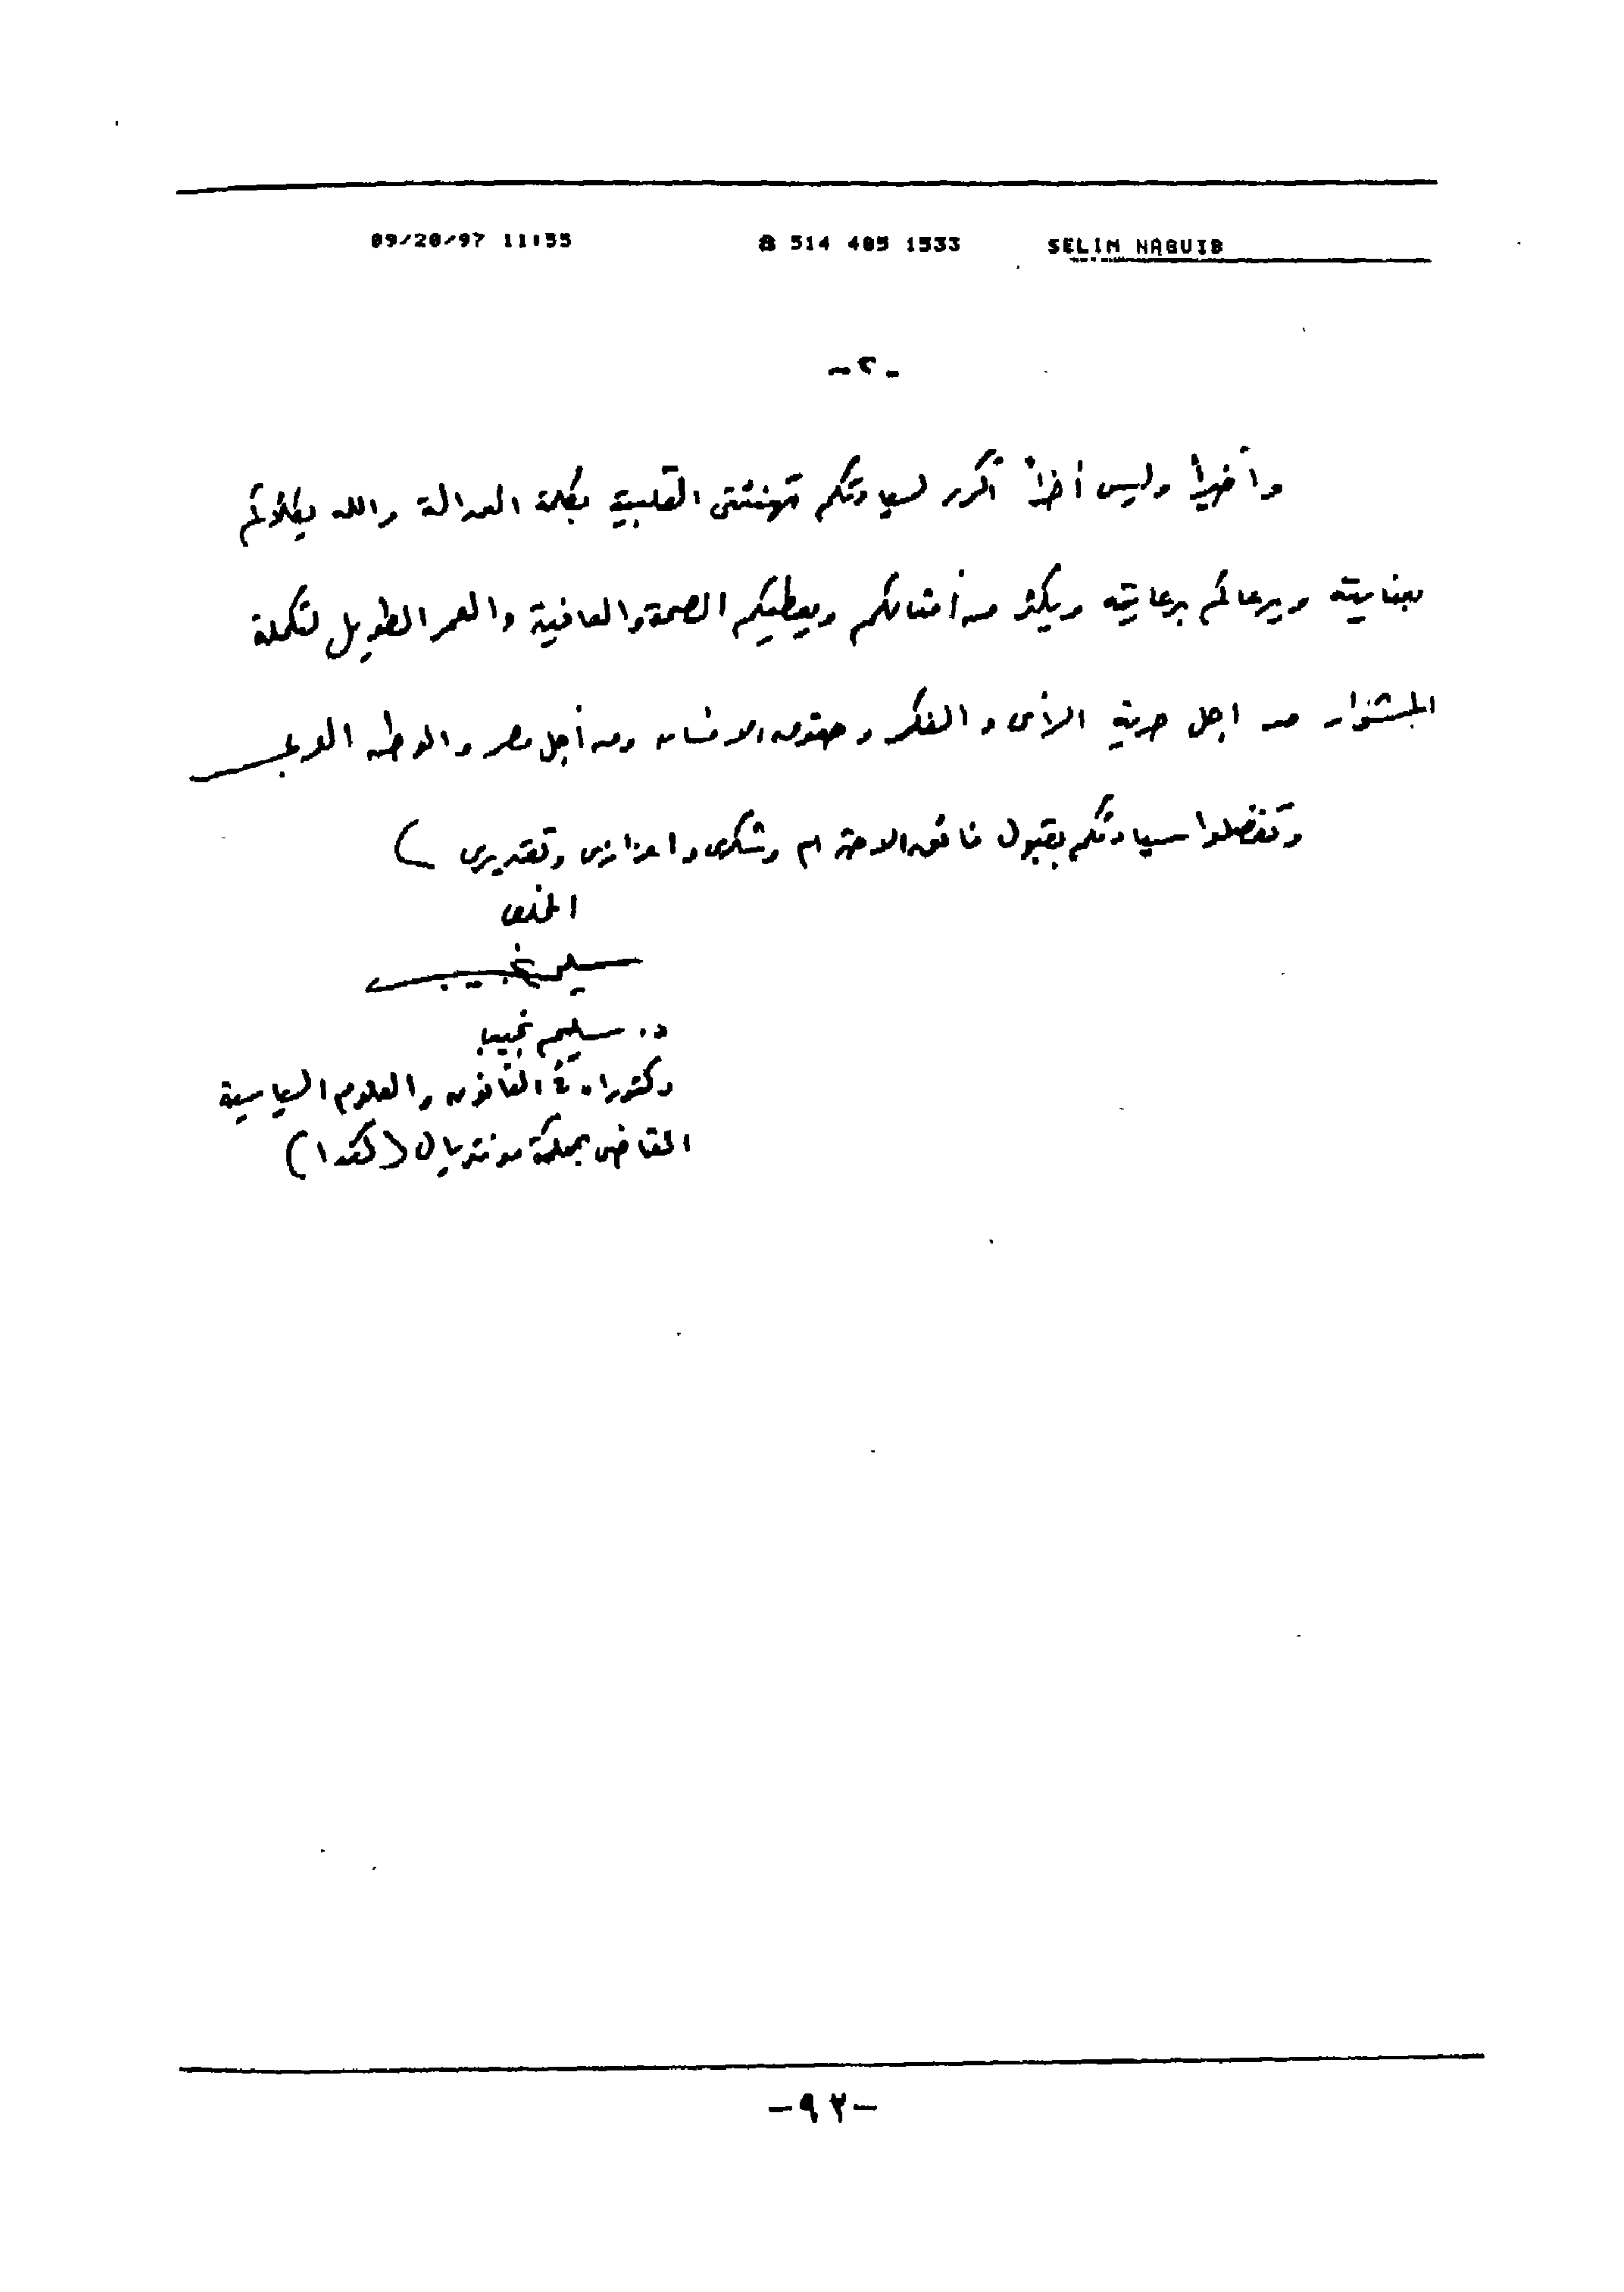 09/20/97 11:55 ☎ 514 485 1533 SELIM NAGUIB
-٢-
وأخيراً وليس آخراً أكرر لسيادتكم تهنئتى القلبية بكلمة العدالة والله يكلؤكم
بعنايته ويرعاكم برعايته ويكثر من أمثالكم ويعطيكم الصحة والعافية والعمر الطويل لتكملة
المشوار من اجل حرية الرأى والفكر وحقوق الانسان ومن أجل مصر والوطن العربى
وتفضلوا سيادتكم بقبول فائق الاحترام وشكرى واعزازى وتقديرى )
المخلص
سليم نجيب
د. سليم نجيب
دكتوراه فى القانون والعلوم السياسية
القاضى بمحكمة مونتريال (كندا)
-٩٢-